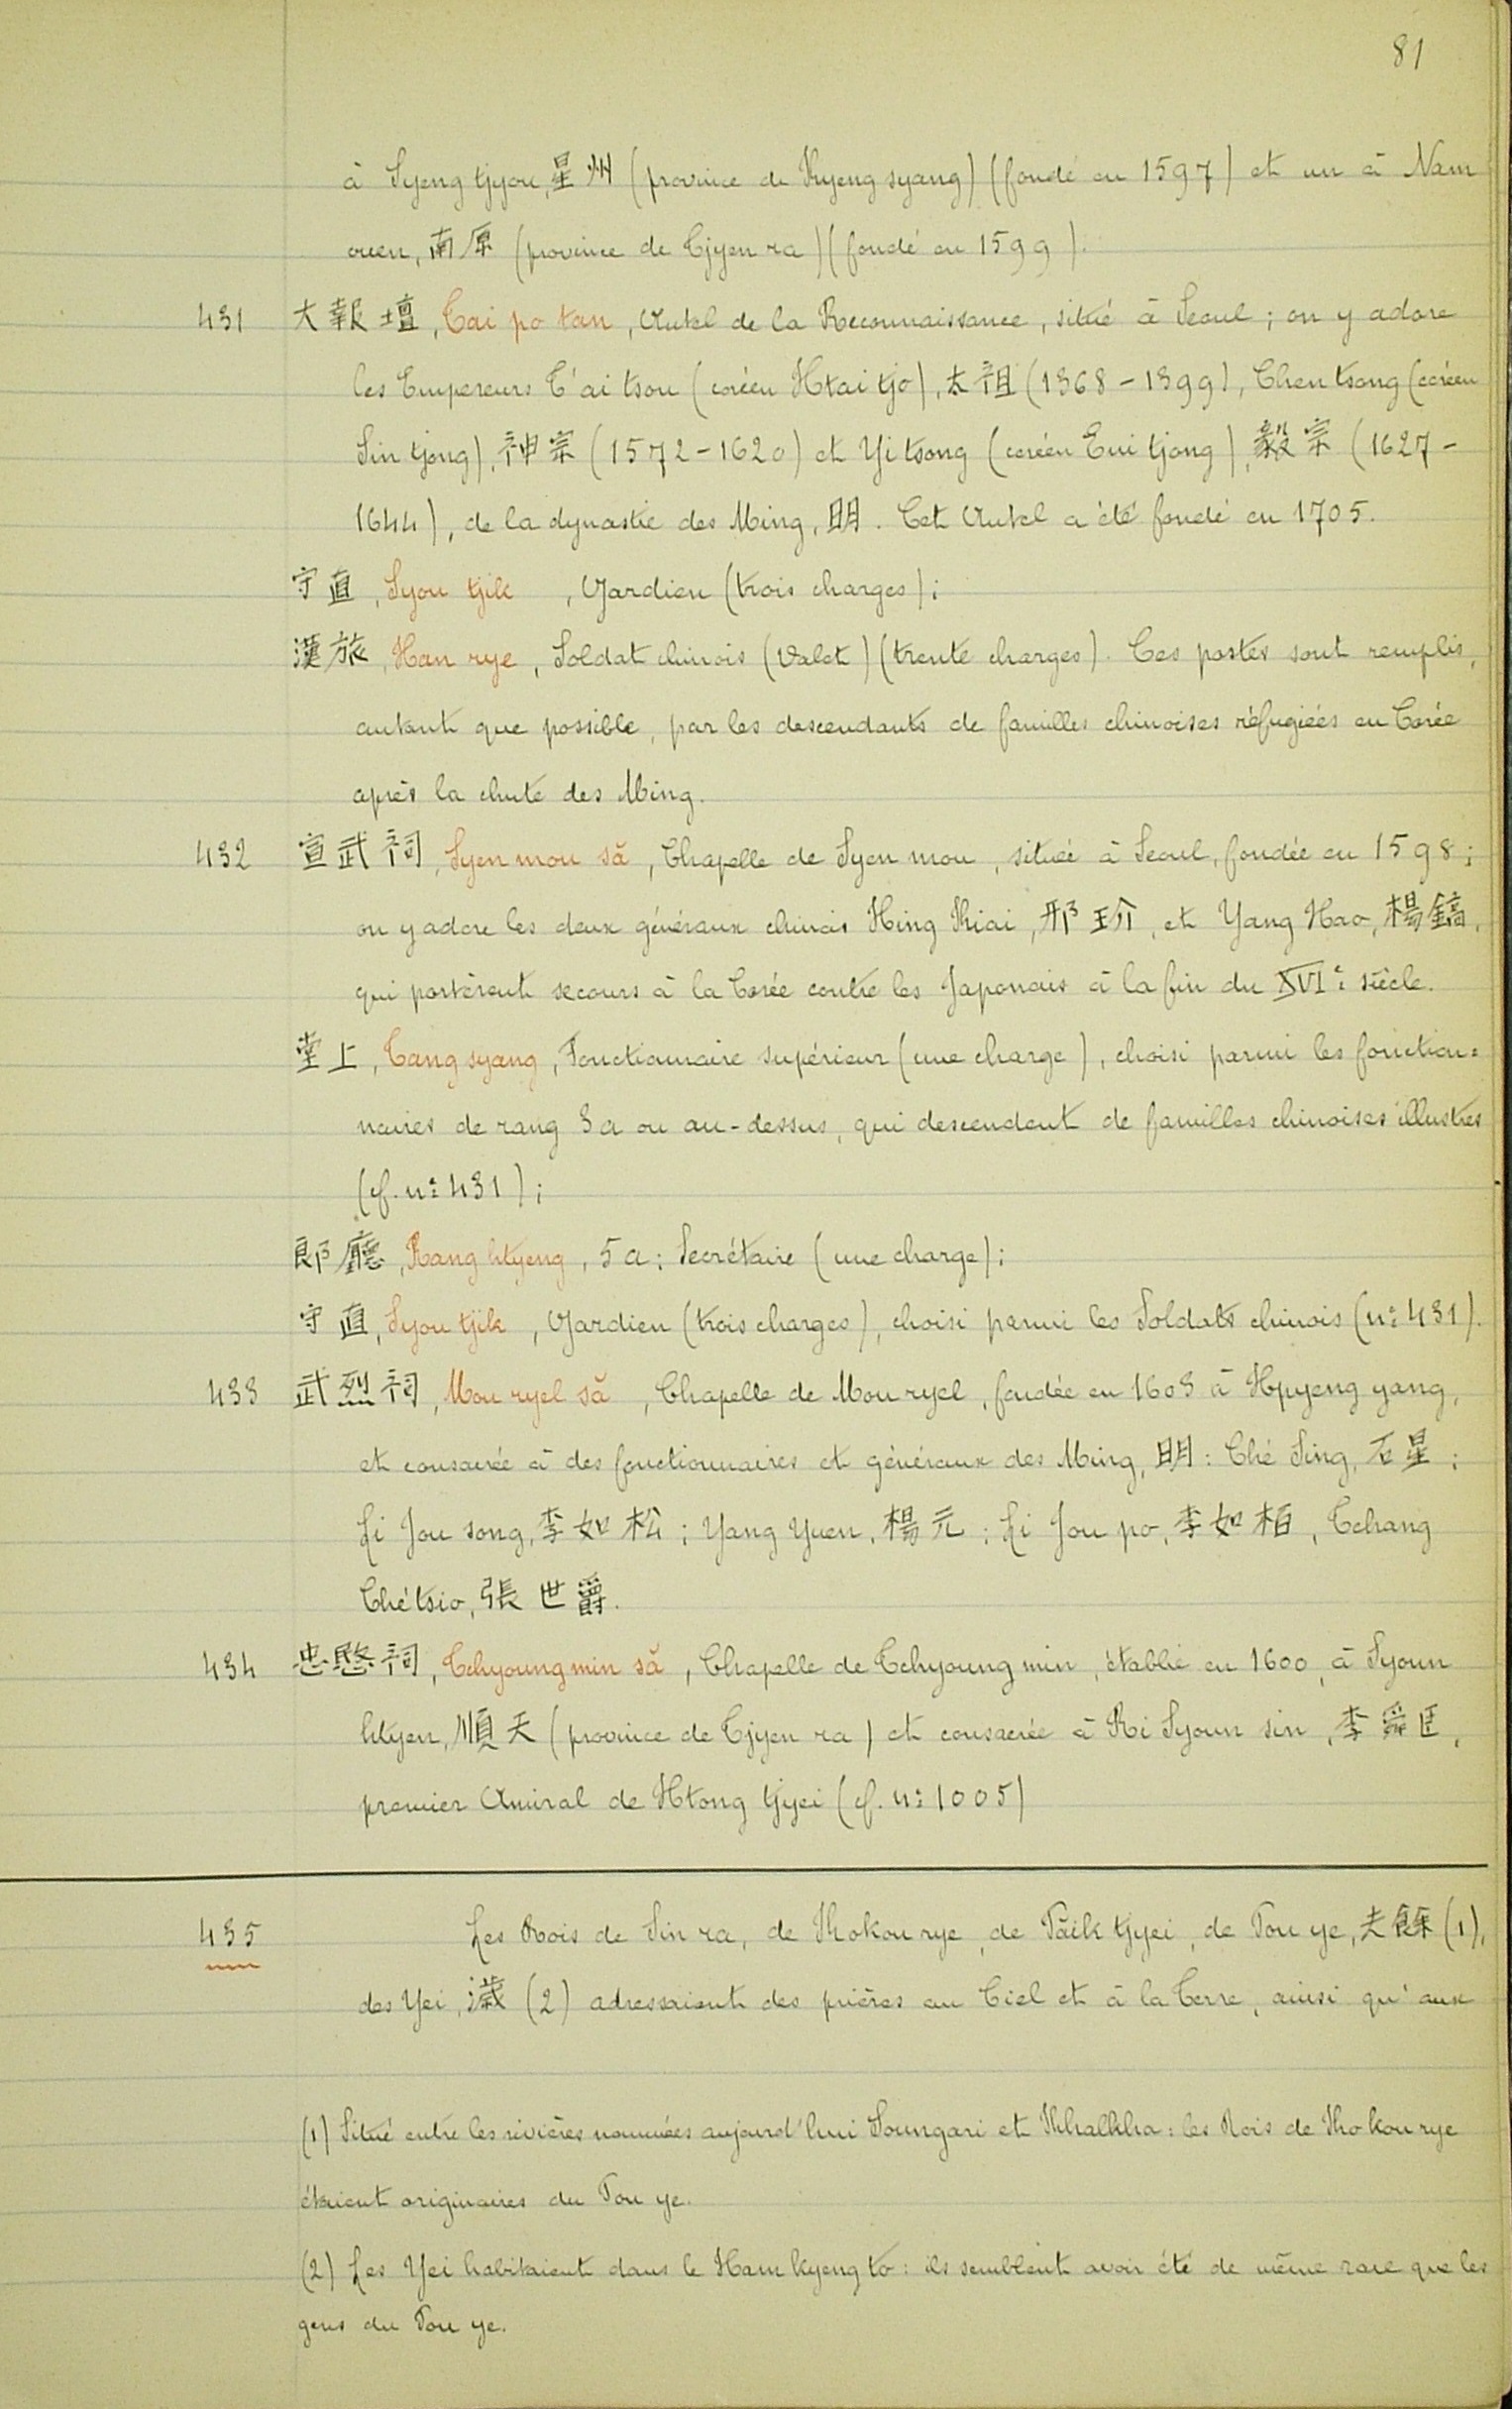 81
à Syeng tjyou, 星州 (province de Kyeng syang) (fondé en 1597) et un à Nam
ouen, 南原 (province de Tjyen ra) (fondé en 1599).
431 大報壇, Tai po tan, Autel de la Reconnaissance, situé à Seoul; on y adore
les Empereurs T'ai tsou (coréen Htai tjo), 太祖 (1368-1399), Chen tsong (coréen
Sin tjong), 神宗 (1572-1620) et Yi tsong (coréen Eui tjong), 毅宗 (1627-
1644), de la dynastie des Ming, 明. Cet Autel a été fondé en 1705.
守直, Syou tjik, Gardien (trois charges);
漢旅, Han rye, Soldat chinois (Valet) (trente charges). Ces postes sont remplis,
autant que possible, par les descendants de familles chinoises réfugiées en Corée
après la chute des Ming.
432 宣武祠, Syen mou să, Chapelle de Syen mou, située à Seoul, fondée en 1598;
on y adore les deux généraux chinois Hing Kiai, 邢玠, et Yang Hao, 楊鎬,
qui portèrent secours à la Corée contre les Japonais à la fin du XVIe siècle.
堂上, Tang syang, Fonctionnaire supérieur (une charge), choisi parmi les fonction=
naires de rang 3a ou au-dessus, qui descendent de familles chinoises illustres
(cf. no 431);
郞廳, Rang htyeng, 5a: Secrétaire (une charge);
守直, Syou tjik, Gardien (trois charges), choisi parmi les Soldats chinois (no 431).
433 武烈祠, Mou ryel să, Chapelle de Mou ryel, fondée en 1603 à Hpyeng yang,
et consacrée à des fonctionnaires et généraux des Ming, 明: Ché Sing, 石星;
Li Jou song, 李如松; Yang Yuen, 楊元; Li Jou po, 李如栢, Tchang
Ché tsio, 張世爵.
434 忠愍祠, Tchyoung min să, Chapelle de Tchyoung min, établie en 1600, à Syoun
htyen, 順天 (province de Tjyen ra) et consacrée à Ri Syoun sin, 李舜臣,
premier Amiral de Htong tjyei (cf. no 1005)
435 Les Rois de Sin ra, de Kokou rye, de Păik tjyei, de Pou ye, 夫餘 (1),
des Yei, 濊 (2) adressaient des prières au Ciel et à la Terre, ainsi qu'aux
(1) Situé entre les rivières nommées aujourd'hui Soungari et Khalkha: les Rois de Ko kou rye
étaient originaires du Pou ye.
(2) Les Yei habitaient dans le Ham kyeng to: ils semblent avoir été de même race que les
gens du Pou ye.